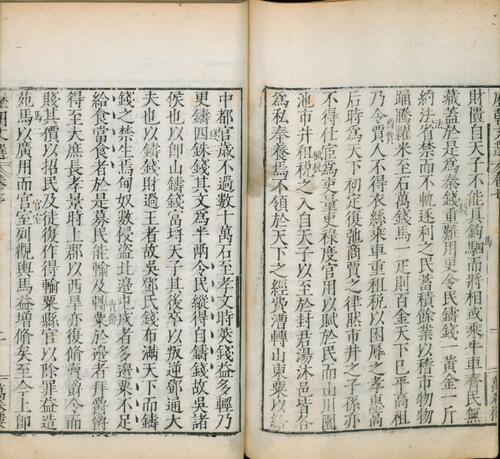 財匱自天子不能具鈞駟而將相或乘牛車齊民無
藏蓋於是爲秦錢重難用更令民鑄錢一黃金一斤
約法省禁而不軌逐利之民蓄積餘業以稽市物物
踊騰糶米至石萬錢馬一疋則百金天下已平高祖
乃令賈人不得衣絲乘車重租稅以困辱之孝惠高
后時爲天下初定復弛商賈之律然市井之子孫亦
不得仕宦爲吏量吏祿度官用以賦於民而山川園
池市井租稅之入自天子以至於封君湯沐邑皆各
爲私奉養焉不領於天下之經費漕轉山東粟以給
中都官歲不過數十萬石至孝文時莢錢益多輕乃
更鑄四銖錢其文爲半兩令民縱得自鑄錢故吳諸
侯也以卽山鑄錢富埓天子其後卒以叛逆鄧通大
夫也以鑄錢財過王者故吳鄧氏錢布滿天下而鑄
錢之禁生焉匈奴數侵盜北邊屯戍者多邊粟不足
給食當食者於是募民能輸及轉粟於邊者拜爵爵
得至大庶長孝景時上郡以西旱亦復脩賣爵令而
賤其價以招民及徒復作得輸粟縣官以除罪益造
苑馬以廣用而宮室列觀輿馬益增脩矣至今上卽